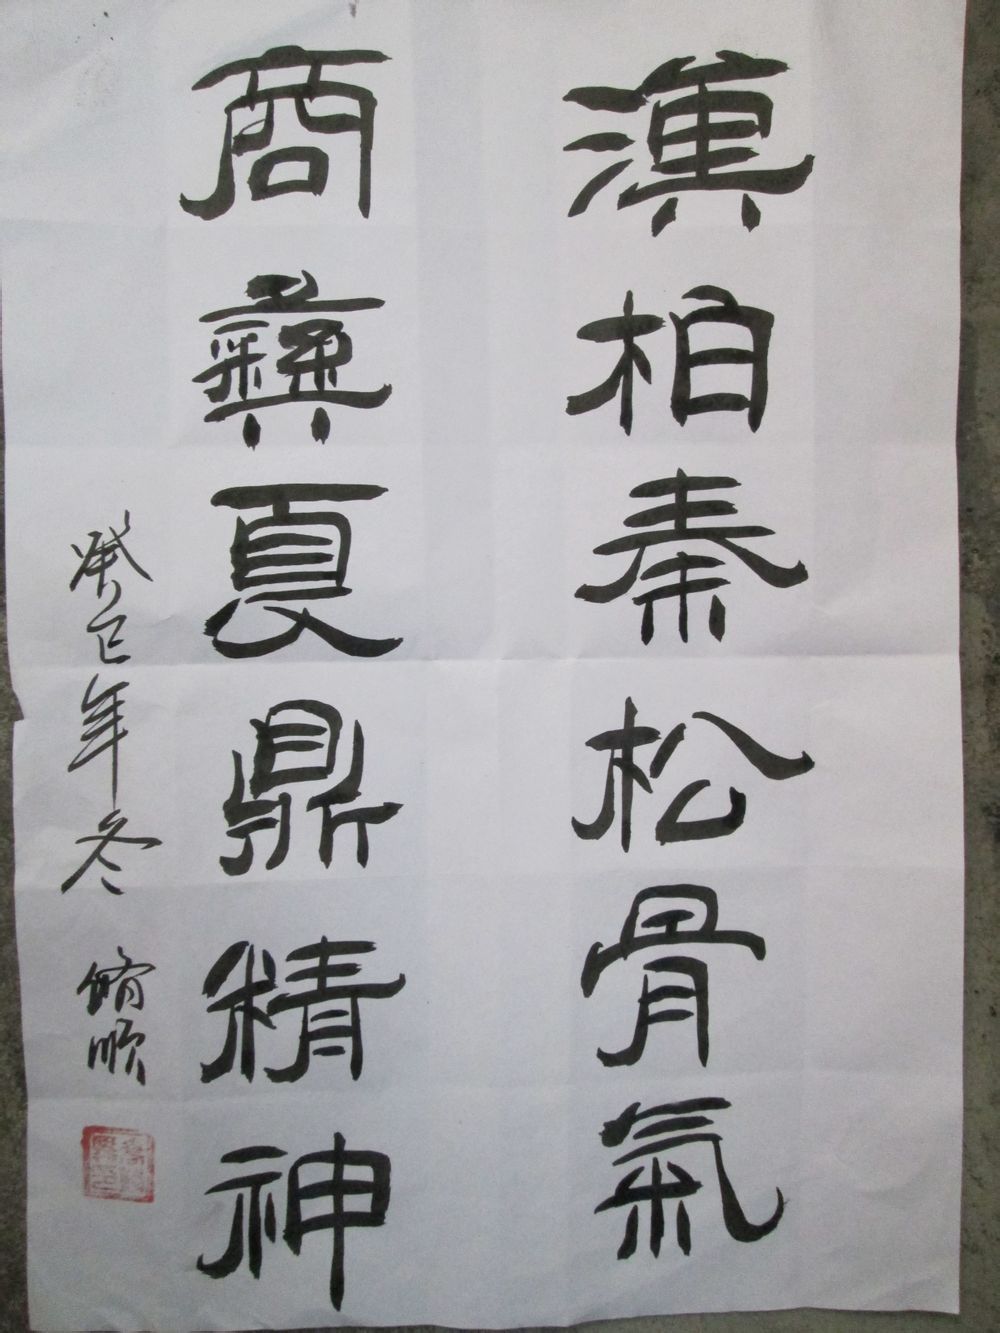 漢柏秦松骨氣
商彝夏鼎精神
癸巳年冬 脩順